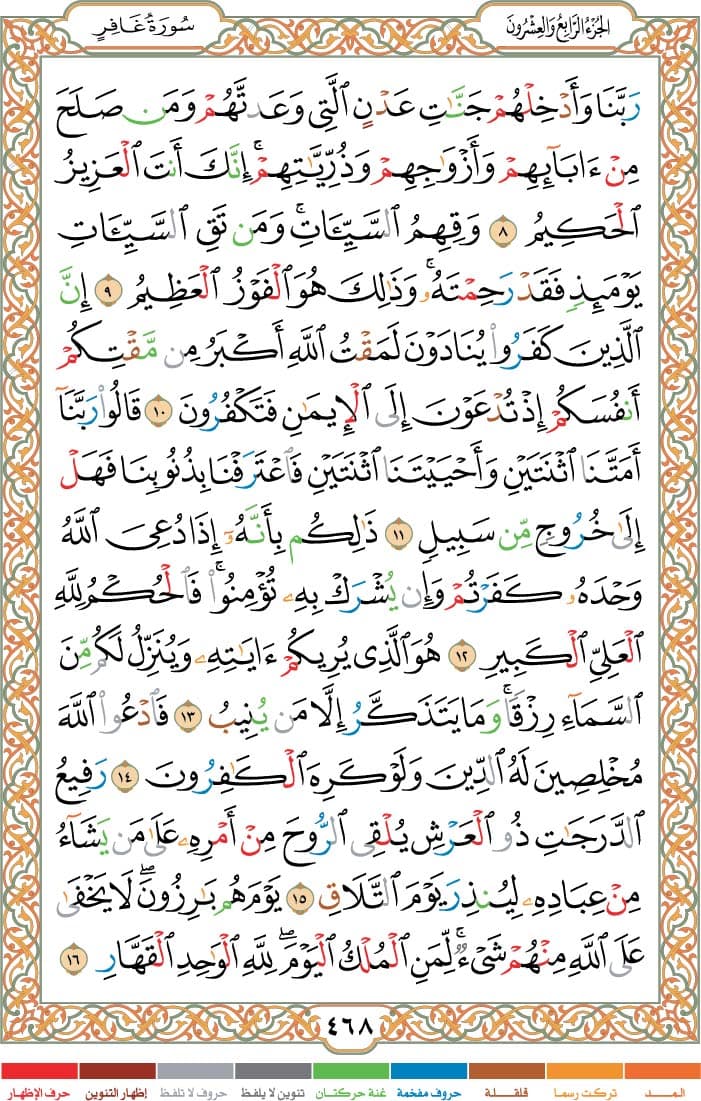 الجُزْءُ الرَّابِعُ وَالعِشْرُونَ
سُورَةُ غَافِرٍ
رَبَّنَا وَأَدْخِلْهُمْ جَنَّاتِ عَدْنٍ ٱلَّتِى وَعَدتَّهُمْ وَمَن صَلَحَ
مِنْ ءَابَآئِهِمْ وَأَزْوَٰجِهِمْ وَذُرِّيَّـٰتِهِمْ ۚ إِنَّكَ أَنتَ ٱلْعَزِيزُ
ٱلْحَكِيمُ ٨ وَقِهِمُ ٱلسَّيِّـَٔاتِ ۚ وَمَن تَقِ ٱلسَّيِّـَٔاتِ
يَوْمَئِذٍ فَقَدْ رَحِمْتَهُۥ ۚ وَذَٰلِكَ هُوَ ٱلْفَوْزُ ٱلْعَظِيمُ ٩ إِنَّ
ٱلَّذِينَ كَفَرُوا۟ يُنَادَوْنَ لَمَقْتُ ٱللَّهِ أَكْبَرُ مِن مَّقْتِكُمْ
أَنفُسَكُمْ إِذْ تُدْعَوْنَ إِلَى ٱلْإِيمَـٰنِ فَتَكْفُرُونَ ١٠ قَالُوا۟ رَبَّنَآ
أَمَتَّنَا ٱثْنَتَيْنِ وَأَحْيَيْتَنَا ٱثْنَتَيْنِ فَٱعْتَرَفْنَا بِذُنُوبِنَا فَهَلْ
إِلَىٰ خُرُوجٍ مِّن سَبِيلٍ ١١ ذَٰلِكُم بِأَنَّهُۥٓ إِذَا دُعِىَ ٱللَّهُ
وَحْدَهُۥ كَفَرْتُمْ ۖ وَإِن يُشْرَكْ بِهِۦ تُؤْمِنُوا۟ ۚ فَٱلْحُكْمُ لِلَّهِ
ٱلْعَلِىِّ ٱلْكَبِيرِ ١٢ هُوَ ٱلَّذِى يُرِيكُمْ ءَايَـٰتِهِۦ وَيُنَزِّلُ لَكُم مِّنَ
ٱلسَّمَآءِ رِزْقًا ۚ وَمَا يَتَذَكَّرُ إِلَّا مَن يُنِيبُ ١٣ فَٱدْعُوا۟ ٱللَّهَ
مُخْلِصِينَ لَهُ ٱلدِّينَ وَلَوْ كَرِهَ ٱلْكَـٰفِرُونَ ١٤ رَفِيعُ
ٱلدَّرَجَـٰتِ ذُو ٱلْعَرْشِ يُلْقِى ٱلرُّوحَ مِنْ أَمْرِهِۦ عَلَىٰ مَن يَشَآءُ
مِنْ عِبَادِهِۦ لِيُنذِرَ يَوْمَ ٱلتَّلَاقِ ١٥ يَوْمَ هُم بَـٰرِزُونَ ۖ لَا يَخْفَىٰ
عَلَى ٱللَّهِ مِنْهُمْ شَىْءٌ ۚ لِّمَنِ ٱلْمُلْكُ ٱلْيَوْمَ ۖ لِلَّهِ ٱلْوَٰحِدِ ٱلْقَهَّارِ ١٦
٤٦٨
المــــد تركت رسما قلقــلة حروف مفخمة غنة حركتان تنوين لا يلفظ حروف لا تلفظ إظهار التنوين حرف الإظهار